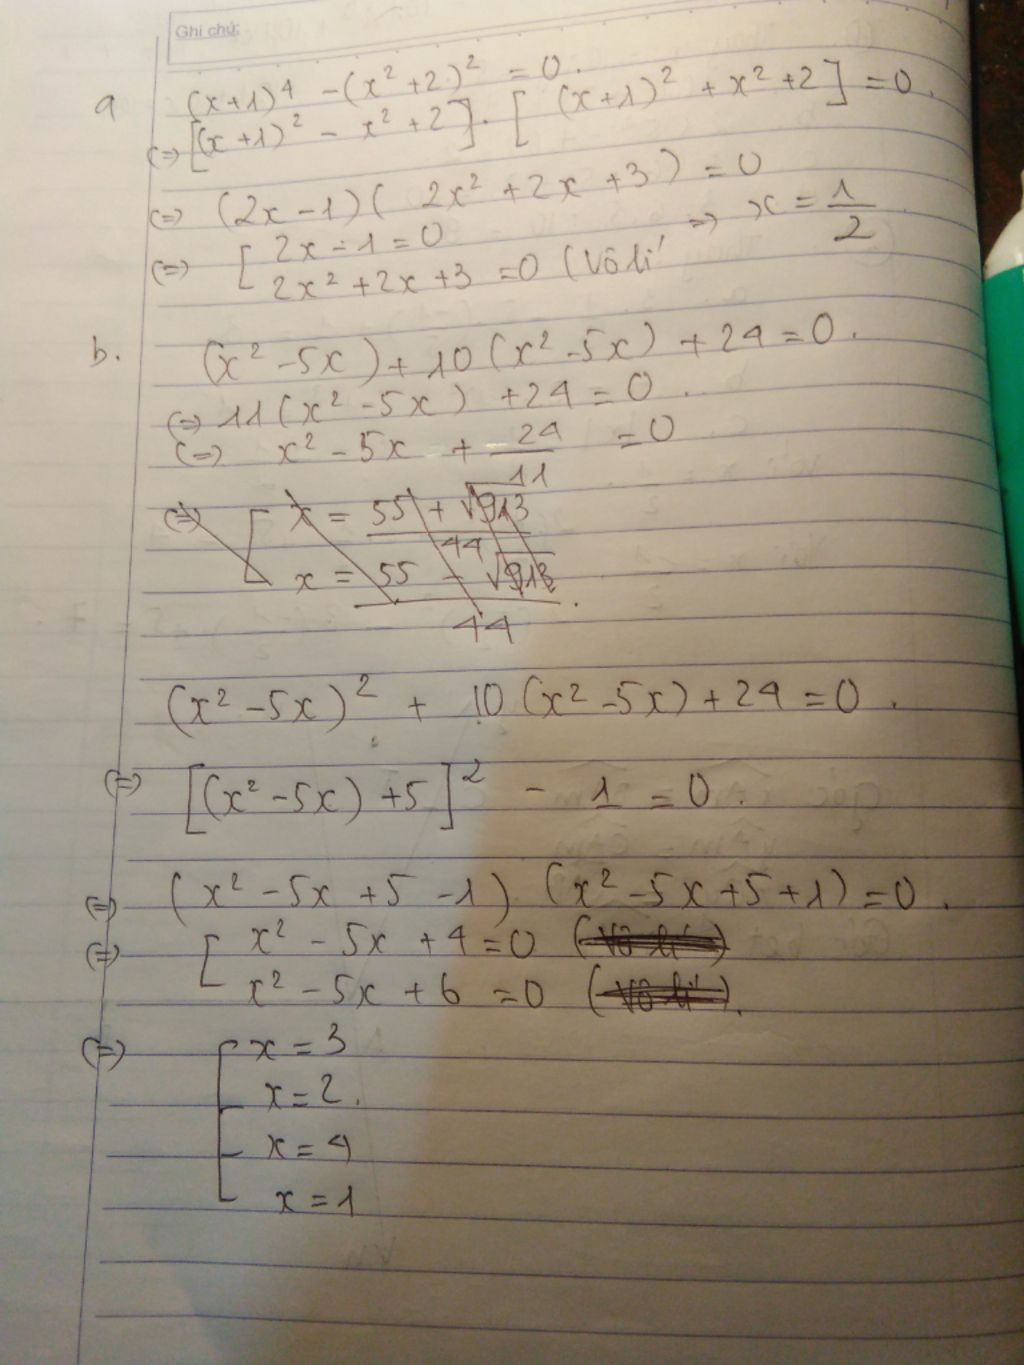 Ghi chú:
a (x+1)⁴ - (x² + 2)² = 0.
(=) [(x+1)² - x² + 2] . [(x+1)² + x² + 2] = 0.
(=) (2x - 1)(2x² + 2x + 3) = 0
(=) [ 2x - 1 = 0 => x = 1/2
2x² + 2x + 3 = 0 (Vô lí
b. (x² - 5x) + 10(x² - 5x) + 24 = 0.
(=) 11(x² - 5x) + 24 = 0.
(=) x² - 5x + 24/11 = 0
(=) [ x = 55 + √913 / 44
x = 55 - √913 / 44.
(x² - 5x)² + 10(x² - 5x) + 24 = 0.
(=) [(x² - 5x) + 5]² - 1 = 0.
(=) (x² - 5x + 5 - 1) (x² - 5x + 5 + 1) = 0.
(=) [ x² - 5x + 4 = 0 (Vô lí)
x² - 5x + 6 = 0 (Vô lí).
(=) [ x = 3
x = 2.
x = 4
x = 1